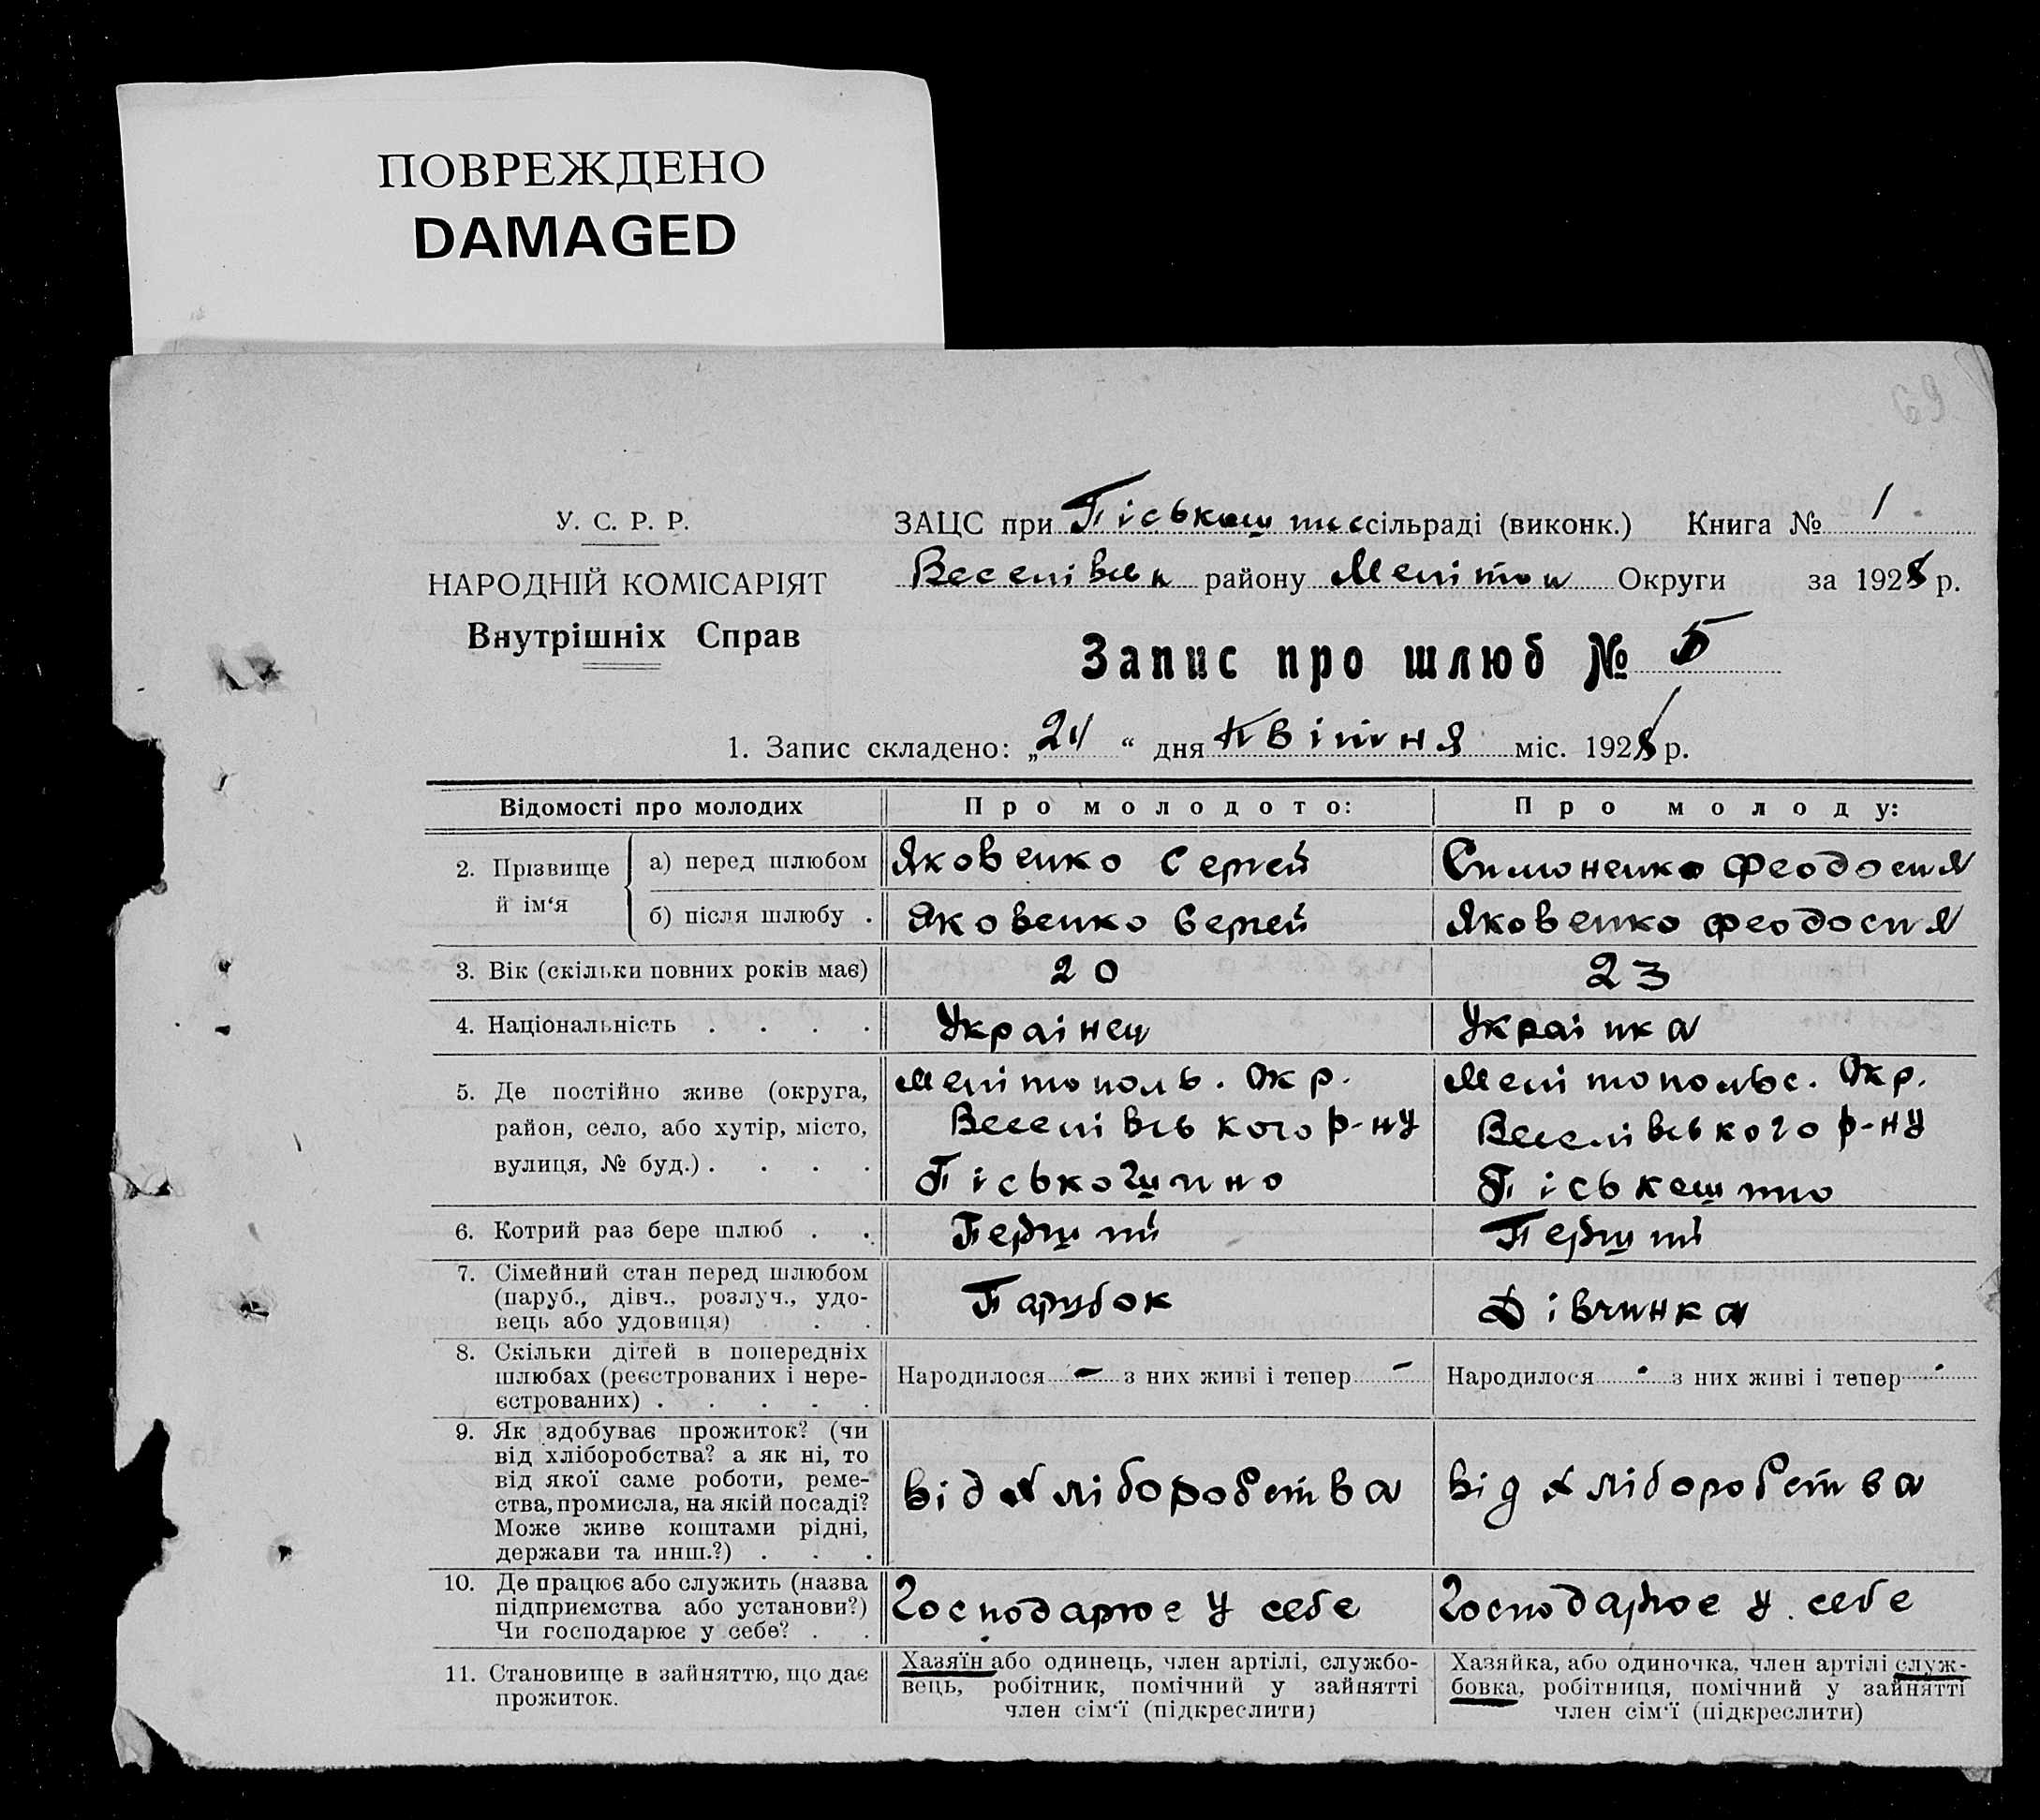 ПОВРЕЖДЕНО
DAMAGED
69
У. С. Р. Р.
НАРОДНІЙ КОМІСАРІЯТ
Внутрішніх Справ
ЗАЦС при сільраді (виконк.) Книга № 1
Веселівськ району Мелітоп Округи за 1928 р.
Запис про шлюб № 5
1. Запис складено: „24“ дня Квітня міс. 1928 р.
Відомості про молодих Про молодого: Про молоду:
2. Прізвище й ім‘я а) перед шлюбом Яковенко Сергей Симоненко Феодосия
б) після шлюбу . Яковенко Сергей Яковенко Феодосия
3. Вік (скільки повних років має) 20 23
4. Національність . . . . Украінец Украінка
5. Де постійно живе (округа, Мелітополь. Окр. Мелітопольс. Окр.
район, село, або хутір, місто, Веселівського р-ну Веселівського р-ну
вулиця, № буд.) . . . .
6. Котрий раз бере шлюб . . Перший Перший
7. Сімейний стан перед шлюбом
(паруб., дівч., розлуч., удо-
вець або удовиця) . . Парубок Дівчинка
8. Скільки дітей в попередніх
шлюбах (реєстрованих і нере-
єстрованих) . . . . . Народилося - з них живі і тепер - Народилося - з них живі і тепер -
9. Як здобуває прожиток? (чи
від хліборобства? а як ні, то
від якої саме роботи, реме-
ства, промисла, на якій посаді?
Може живе коштами рідні,
держави та инш.?) . . . від хліборобства від хліборобства
10. Де працює або служить (назва
підприємства або установи?)
Чи господарює у себе? . . Господарює у себе Господарює у себе
11. Становище в зайняттю, що дає
прожиток.
Хазяїн або одинець, член артілі, службо-
вець, робітник, помічний у зайнятті
член сім‘ї (підкреслити)
Хазяйка, або одиночка, член артілі служ-
бовка, робітниця, помічний у зайнятті
член сім‘ї (підкреслити)